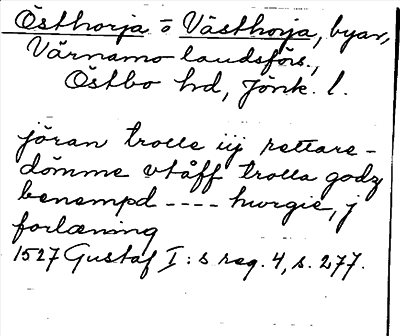 Östhorja o Västhorja, byar,
Värnamo landsförs.,
Östbo hd, Jönk. l.
jöran trolle iij rettare-
dömme vtåff trolla godz
benempd ---- hvrgie, j
forlæning
1527 Gustaf I:s reg. 4, s. 277.